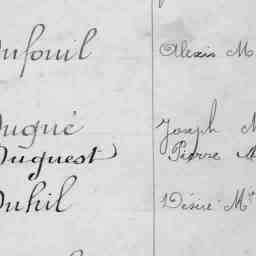 Dufouil Alexis M
Dugué Joseph M
Duguest Pierre M
Duhil Désiré Mie